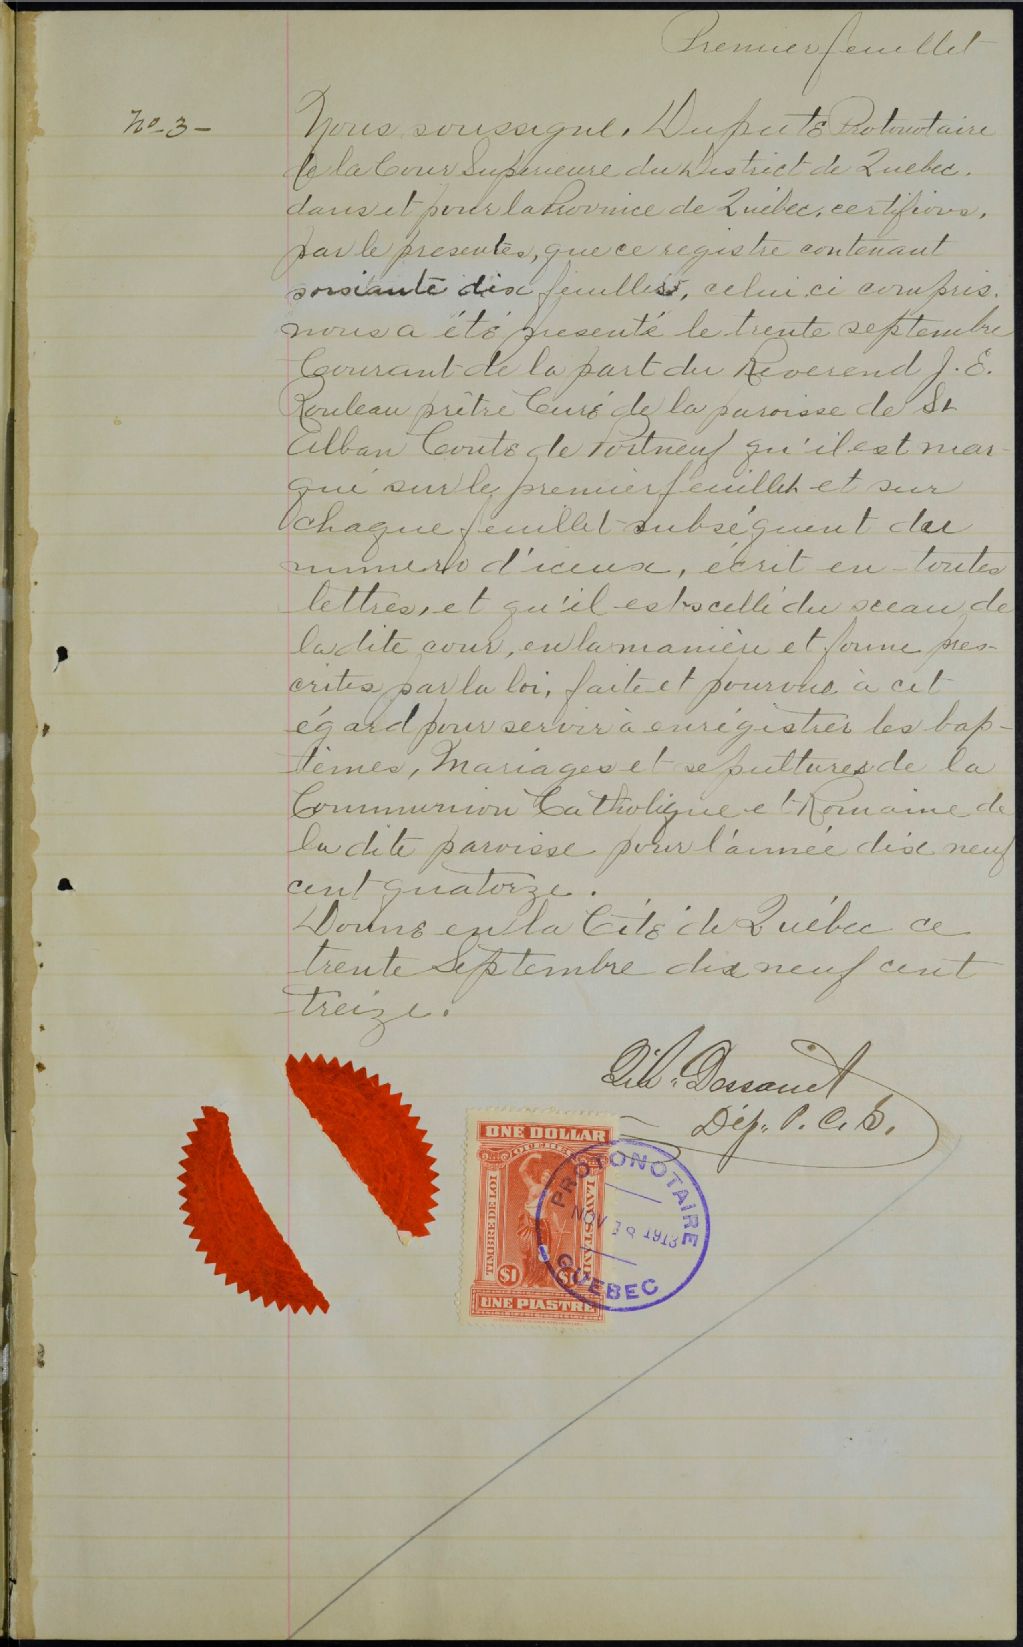 Premier feuillet
No-3-
Nous soussigné. Députe Protonotaire
de la Cour Superieure du District de Quebec.
dans et pour la Province de Québec, certifions,
par le presentes, que ce registre contenant
soixiante dix feuillets, celui ci compris.
nous a été presenté le trente septembre
Courant de la part du Reverend J. E.
Rouleau prêtre Curé de la paroisse de St
Alban Conté de Portneuf qu'il est mar-
qué sur le premier feuillet et sur
chaque feuillet subséquent du
numero d'iceux, écrit en toutes
lettres, et qu'il est scellé du sceau de
la dite cour, en la manière et forme pres-
crites par la loi, faite et pourvue à cet
égard pour servir à enrégistrer les bap-
têmes, Mariages et sepultures de la
Communion Catholique et Romaine de
la dite paroisse pour l'année dix neuf
cent quatorze.
Donné en la Cité de Québec ce
trente Septembre dix neuf cent
treize.
Dép. P. C. S.
ONE DOLLAR
QUEBEC
TIMBRE DE LOI
LAW STAMP
$1
$1
UNE PIASTRE
PROTONOTAIRE
NOV 18 1913
QUEBEC